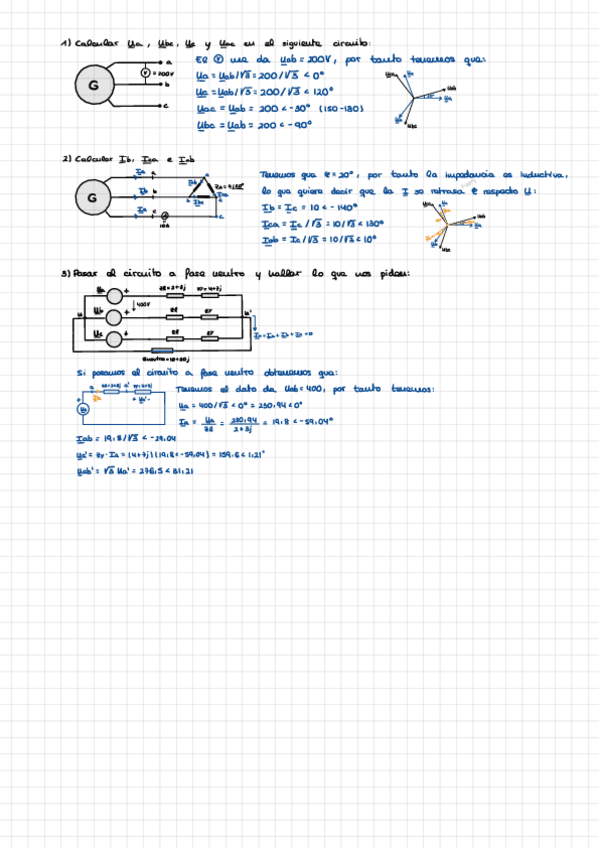 1) Calcular Ua, Ubc, Uc y Uac en el siguiente circuito:
G
a
V = 200V
b
c
El V me da Uab = 200V, por tanto tenemos que:
Ua = Uab/√3 = 200/√3 < 0°
Uc = Uab/√3 = 200/√3 < 120°
Uac = Uab = 200 < -30° (150-180)
Ubc = Uab = 200 < -90°
2) Calcular Ib, Ica e Iab
G
Tenemos que φ = 20°, por tanto la impedancia es inductiva,
lo que quiere decir que la I se retrasa φ respecto U:
Ib = Ic = 10 < -140°
Ica = Ic/√3 = 10/√3 < 130°
Iab = Ic/√3 = 10/√3 < 10°
3) Pasar el circuito a fase neutro y hallar lo que nos piden:
Ua
Ub
Uc
400V
Zl = 2+3j
Zl
Zl
In = Ia + Ib + Ic = 0
Si pasamos el circuito a fase neutro obtenemos que:
Tenemos el dato de Uab = 400, por tanto tenemos:
Ua = 400/√3 < 0° = 230,94 < 0°
Ia = Ua/Zl = 230,94/2+3j = 19,8 < -59,04°
Iab = 19,8/√3 < -29,04
Ua' = Zy · Ia = (4+7j)(19,8 < -59,04) = 159,6 < 1,21°
Uab' = √3 Ua' = 276,5 < 31,21